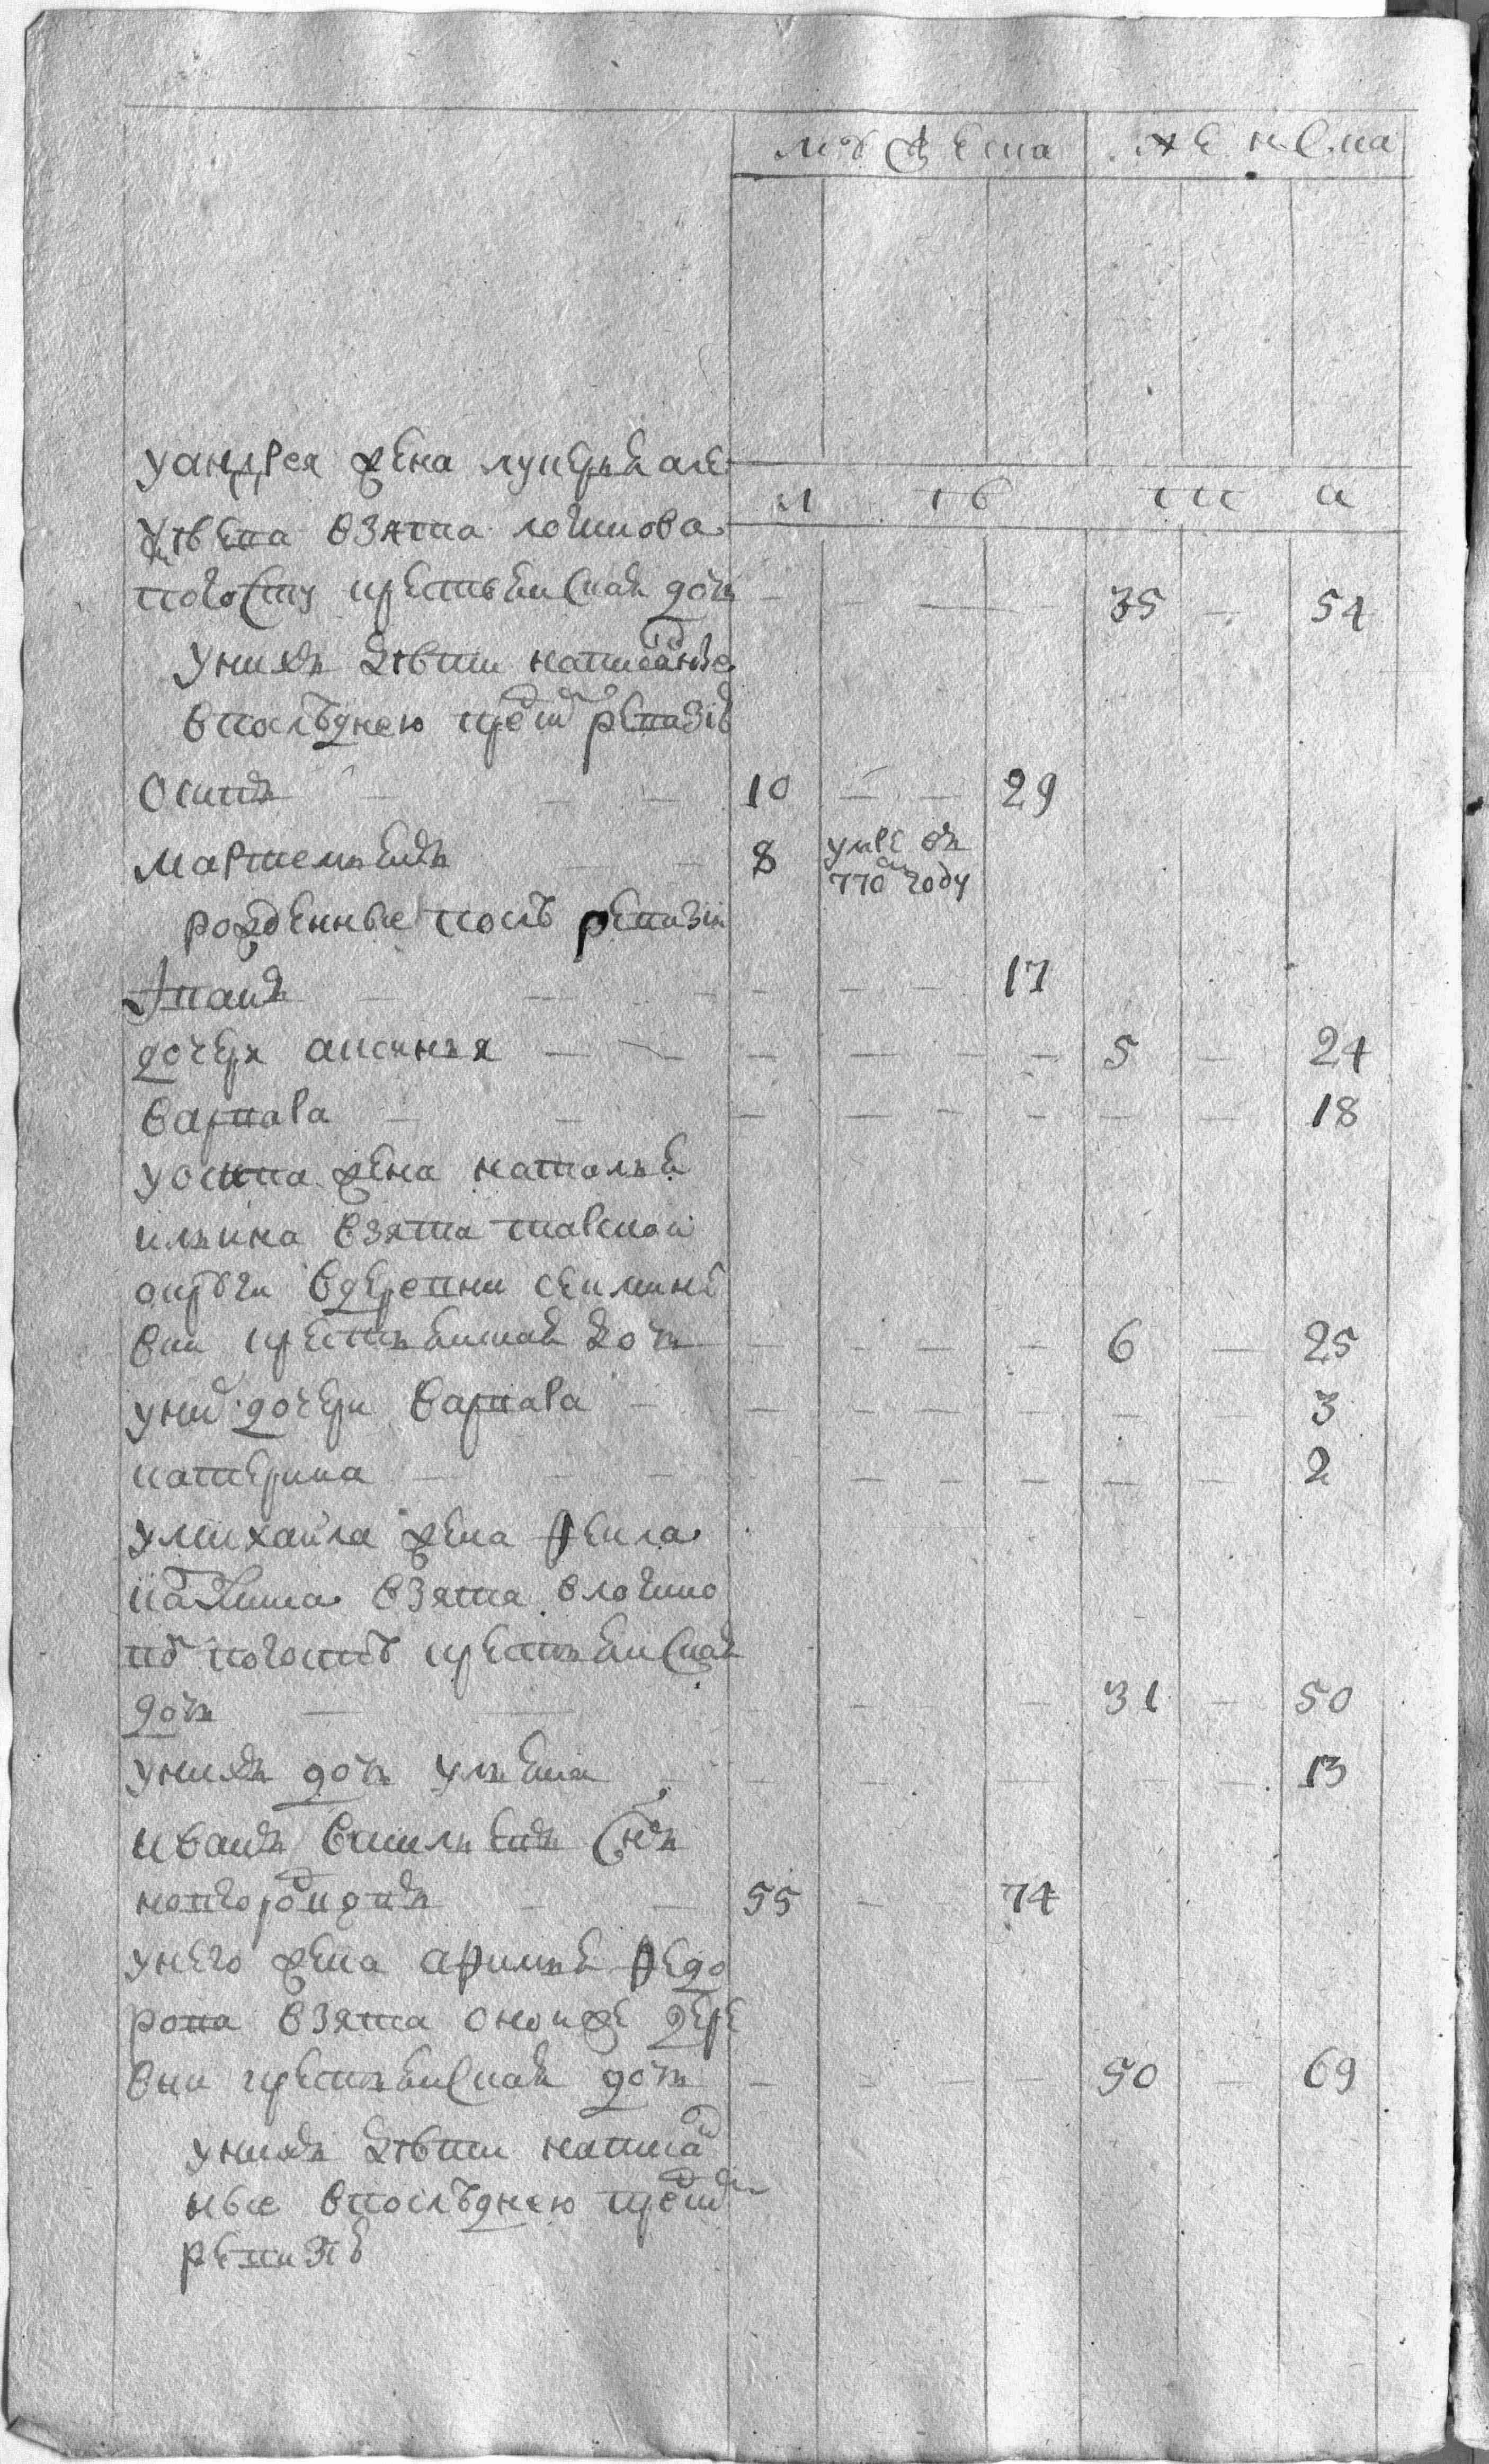 мужеска женска
л ѣ т а
у андрея жена лукерья але
ѯѣева взята логинова
погосту крестьянская дочь 35 54
у них дѣти написанные
в последнею пред ревизiю
Осипъ 10 29
Мартемьянъ 8 умре въ 770м году
рожденные после ревизiи
Иванъ 17
дочеря аксинья 5 24
варвара 18
у осипа жена наталья
ильина взята тавской
округи в деревни
вни крестьянская дочь 6 25
у них дочери варвара 3
катерина 2
у михайла жена фекла
взята в логино
ве погосте крестьянская
дочь 31 50
у них дочь ульяна 13
Иванъ васильевъ снъ
новгородцовъ 55 74
у него жена афимья федо
рова взята оной же дере
вни крестьянская дочь 50 69
у них дѣти написа
ные в последнею пред
ревизiю